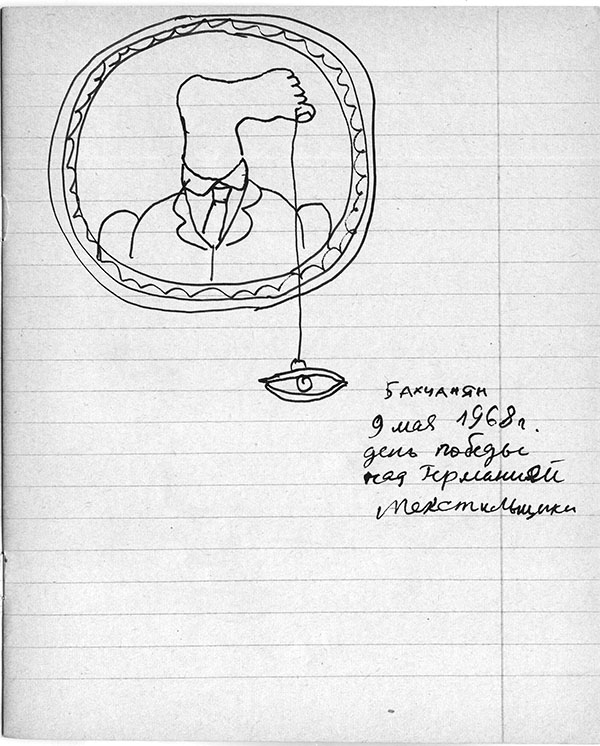 Бахчанян
9 мая 1968г.
день победы
над Германией
Текстильщики